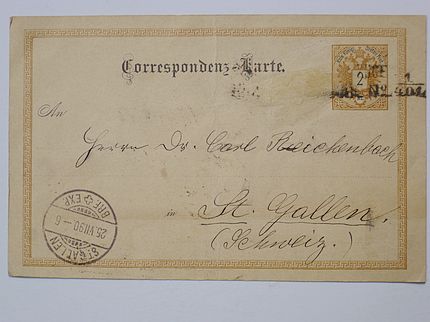 Correspondenz-Karte.
2
1
No 401
An
Herrn Dr. Carl Reichenbach
in St. Gallen.
(Schweiz.)
ST. GALLEN
25.VII.90.-6
BRF. EXP.